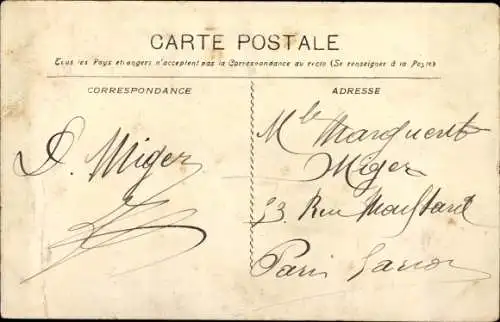 CARTE POSTALE
Tous les Pays étrangers n'acceptent pas la Correspondance au recto (Se renseigner à la Poste)
CORRESPONDANCE
ADRESSE
D. Miger
Mlle Marguerite
Miger
Rue Mouffetard
Paris